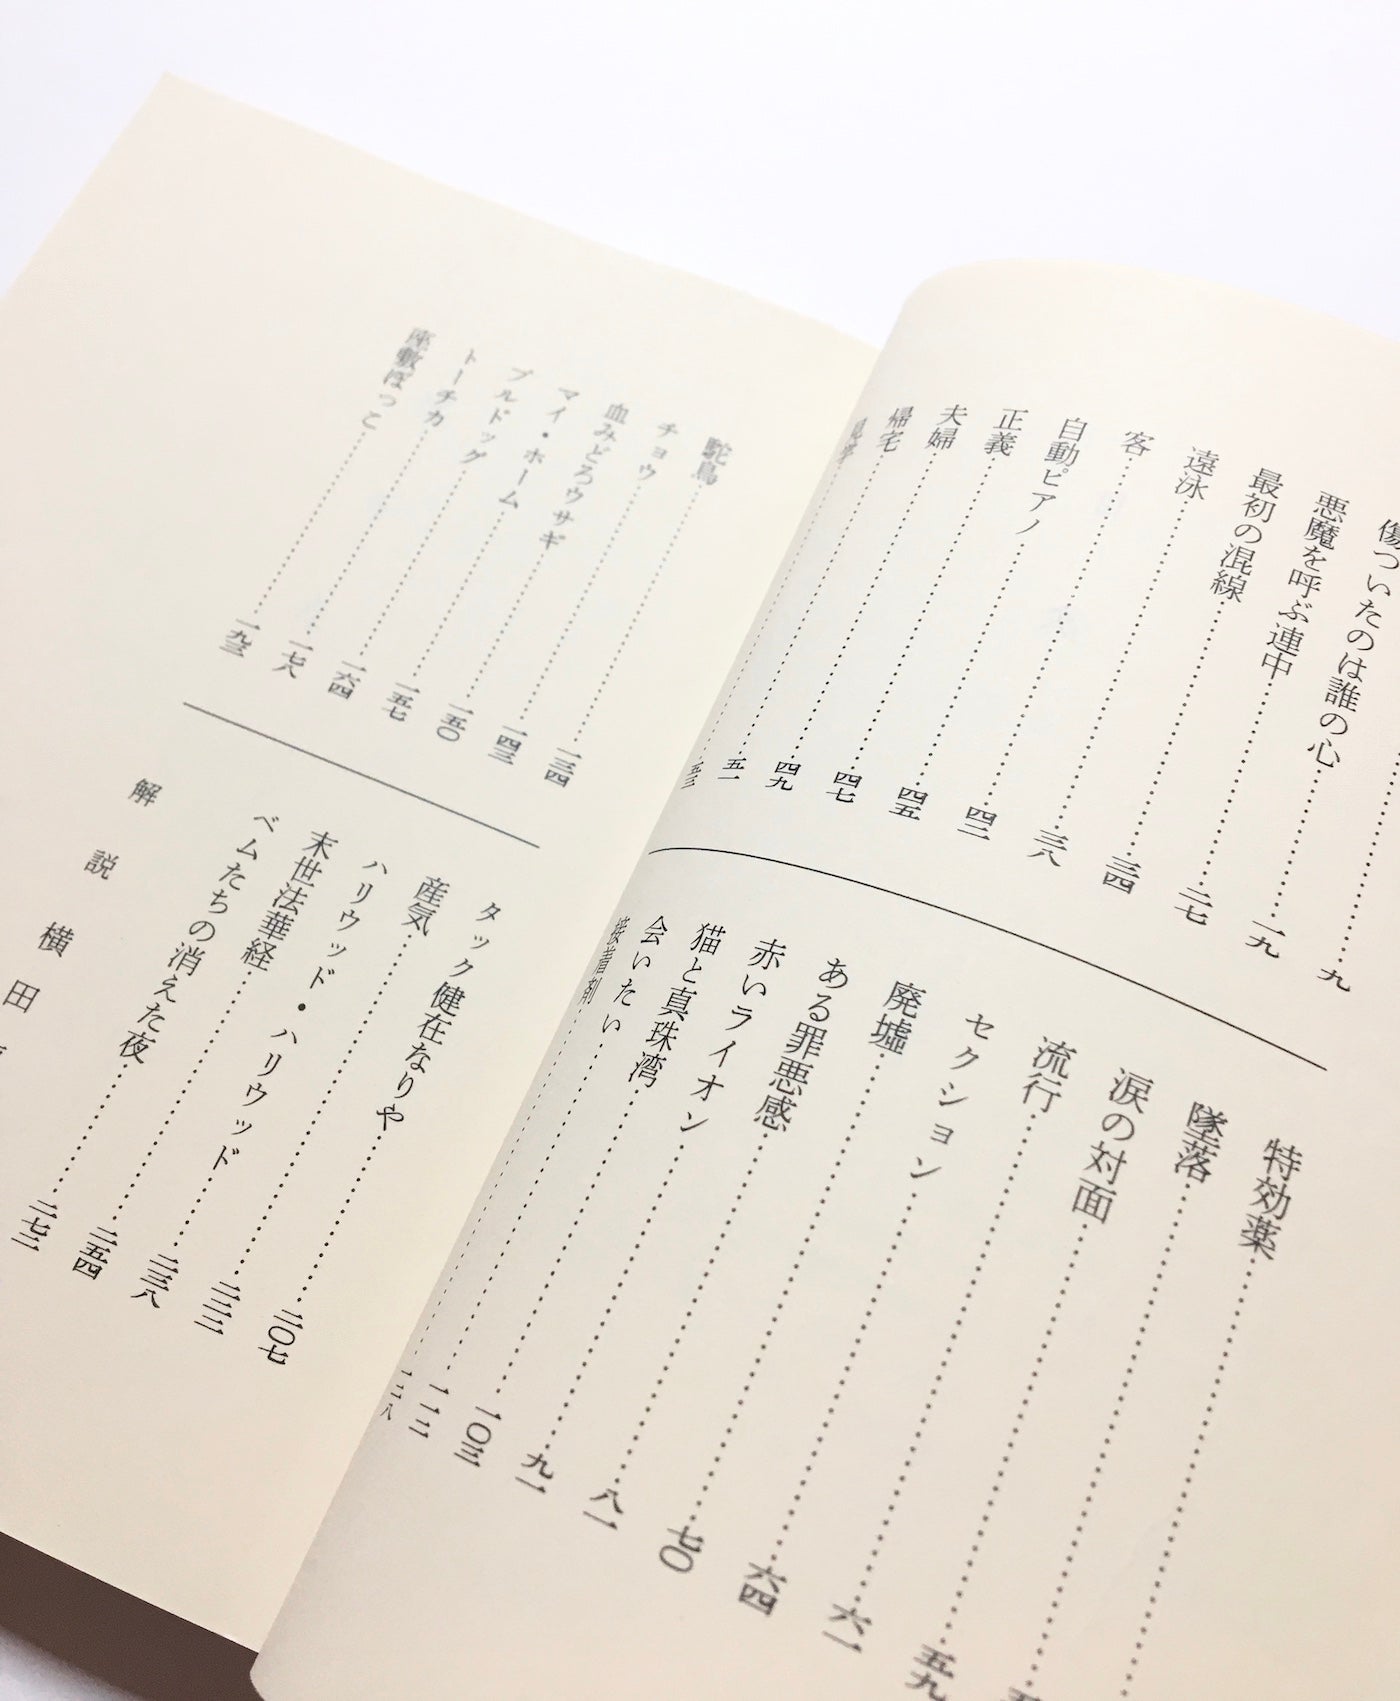 九
傷ついたのは誰の心……一九
悪魔を呼ぶ連中……二七
最初の混線……三四
遠泳……三八
客……四二
自動ピアノ……四五
正義……四七
夫婦……四九
帰宅……五一
見学……五三
特効薬
墜落
涙の対面……五九
流行……六一
セクション……六四
廃墟……七〇
ある罪悪感……八一
赤いライオン……九一
猫と真珠湾……一〇三
会いたい……一一二
接着剤……一二八
駝鳥……一三四
チョウ……一四三
血みどろウサギ……一五〇
マイ・ホーム……一五七
ブルドッグ……一六四
トーチカ……一七八
座敷ぼっこ……一九三
タック健在なりや……二〇七
産気……
ハリウッド・ハリウッド……二三八
末世法華経……二五四
ベムたちの消えた夜……
解説 横田